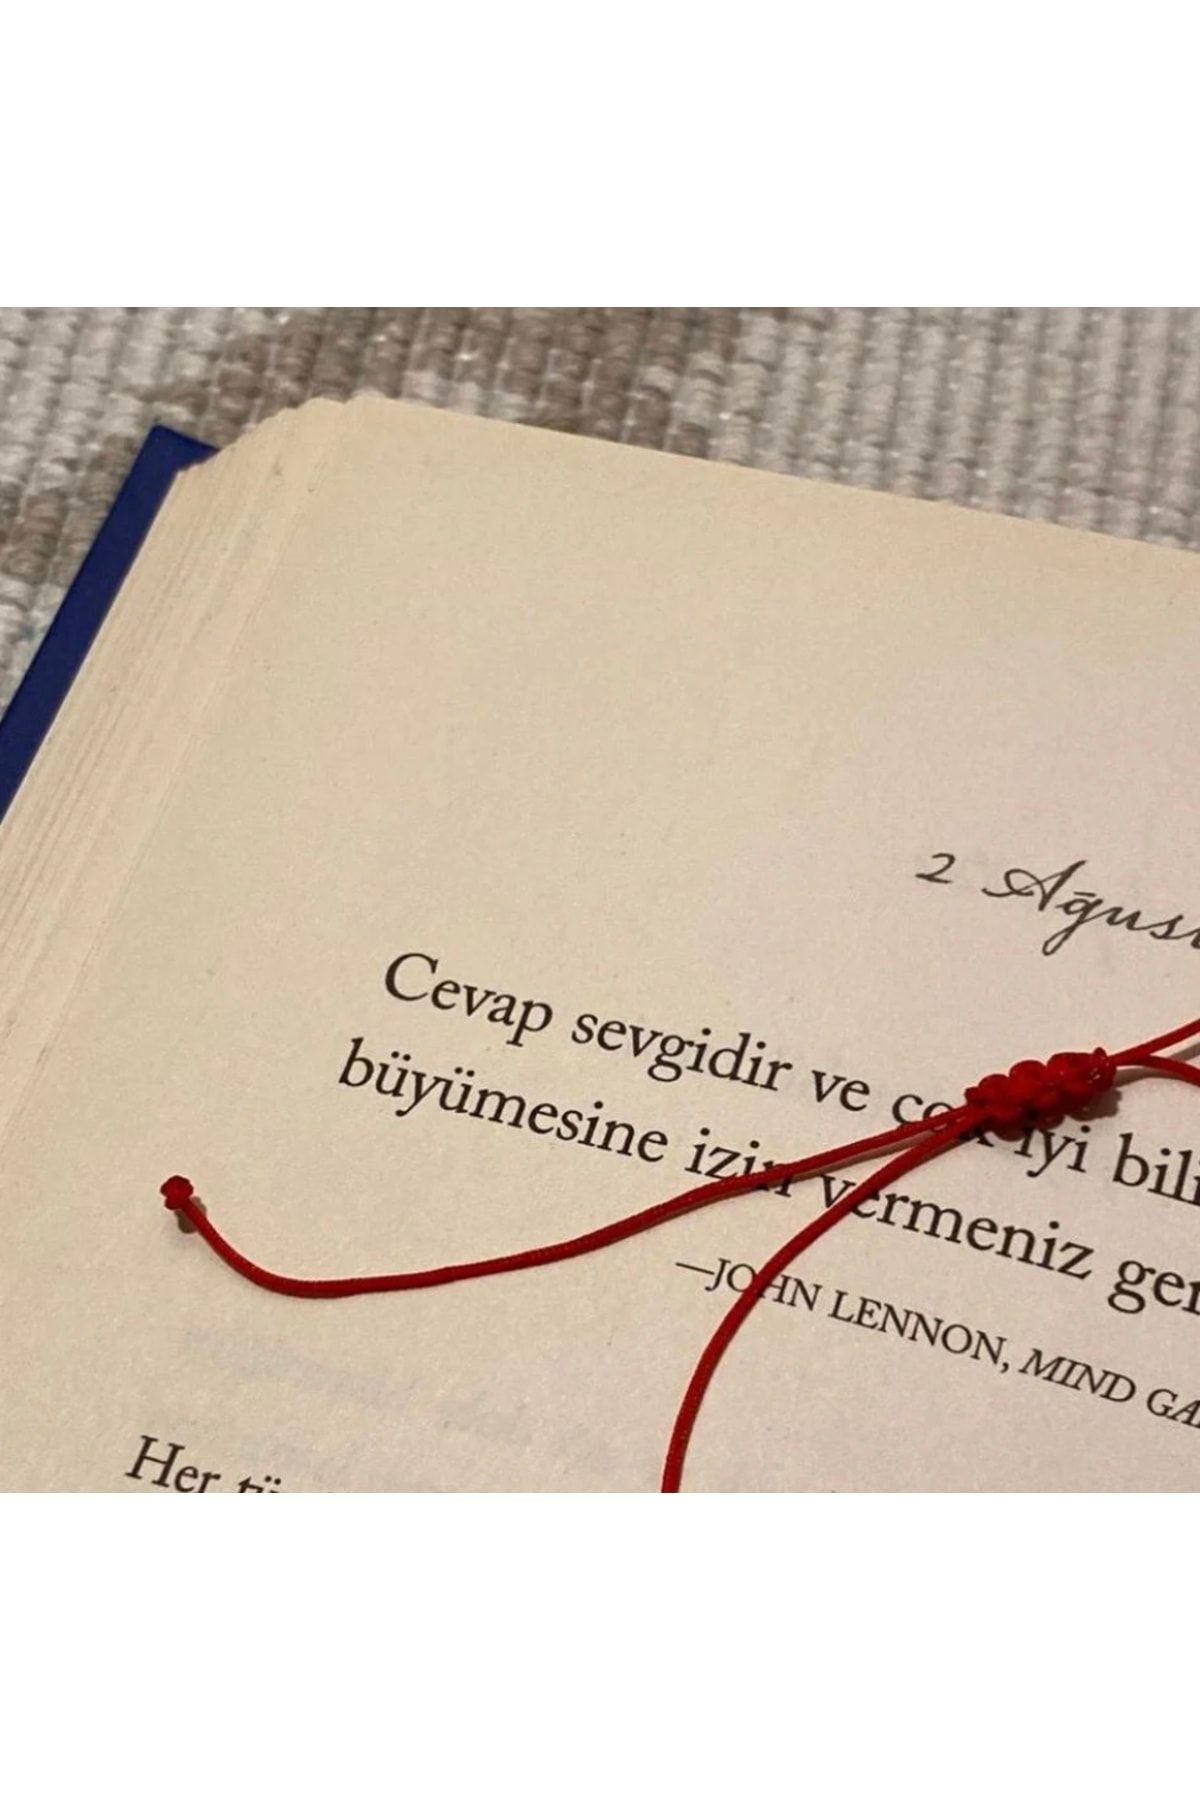 2 Ağus
Cevap sevgidir ve çok iyi bili
büyümesine izin vermeniz ger
—JOHN LENNON, MIND GA
Her tü